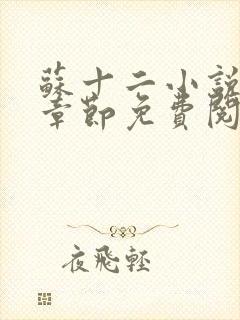 蘇十二小說
章節免費閱
夜飛輕